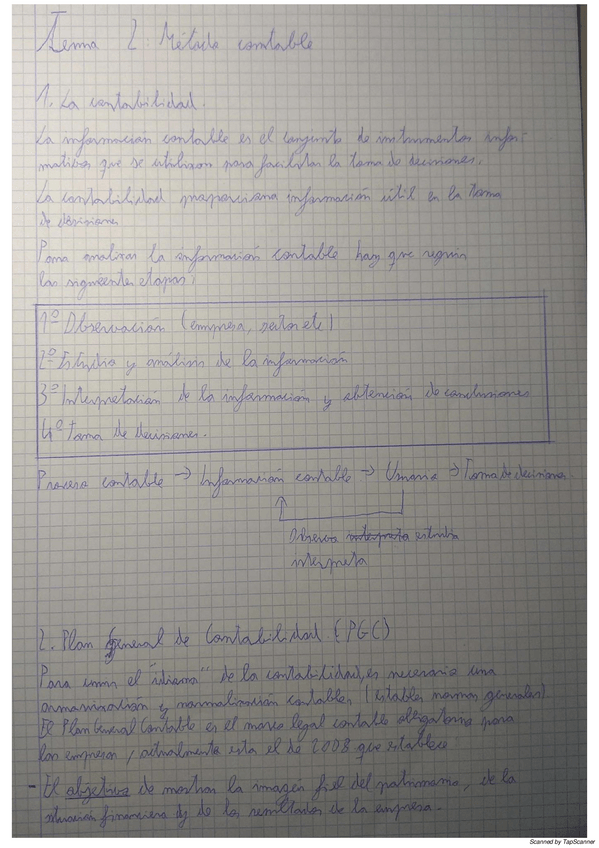 Tema 2: Método contable
1. La contabilidad.
La información contable es el conjunto de instrumentos infor-
mativos que se utilizan para facilitar la toma de decisiones.
La contabilidad proporciona información útil en la toma
de decisiones
Para analizar la información contable hay que seguir
las siguientes etapas:
1º Observación (empresa, sector etc)
2º Estudio y análisis de la información
3º Interpretación de la información y obtención de conclusiones
4º Toma de decisiones.
Proceso contable → Información contable → Usuario → Toma de decisiones
Observa interpreta estudia
interpreta
2. Plan General de Contabilidad. (PGC)
Para el "idioma" de la contabilidad, es necesario una
armonización y normalización contables, (establer normas generales).
El Plan General Contable es el marco legal contable obligatorio para
las empresas, actualmente esta el de 2008 que establece
- El objetivo de mostrar la imagen fiel del patrimonio, de la
situación financiera y de los resultados de la empresa.
Scanned by TapScanner